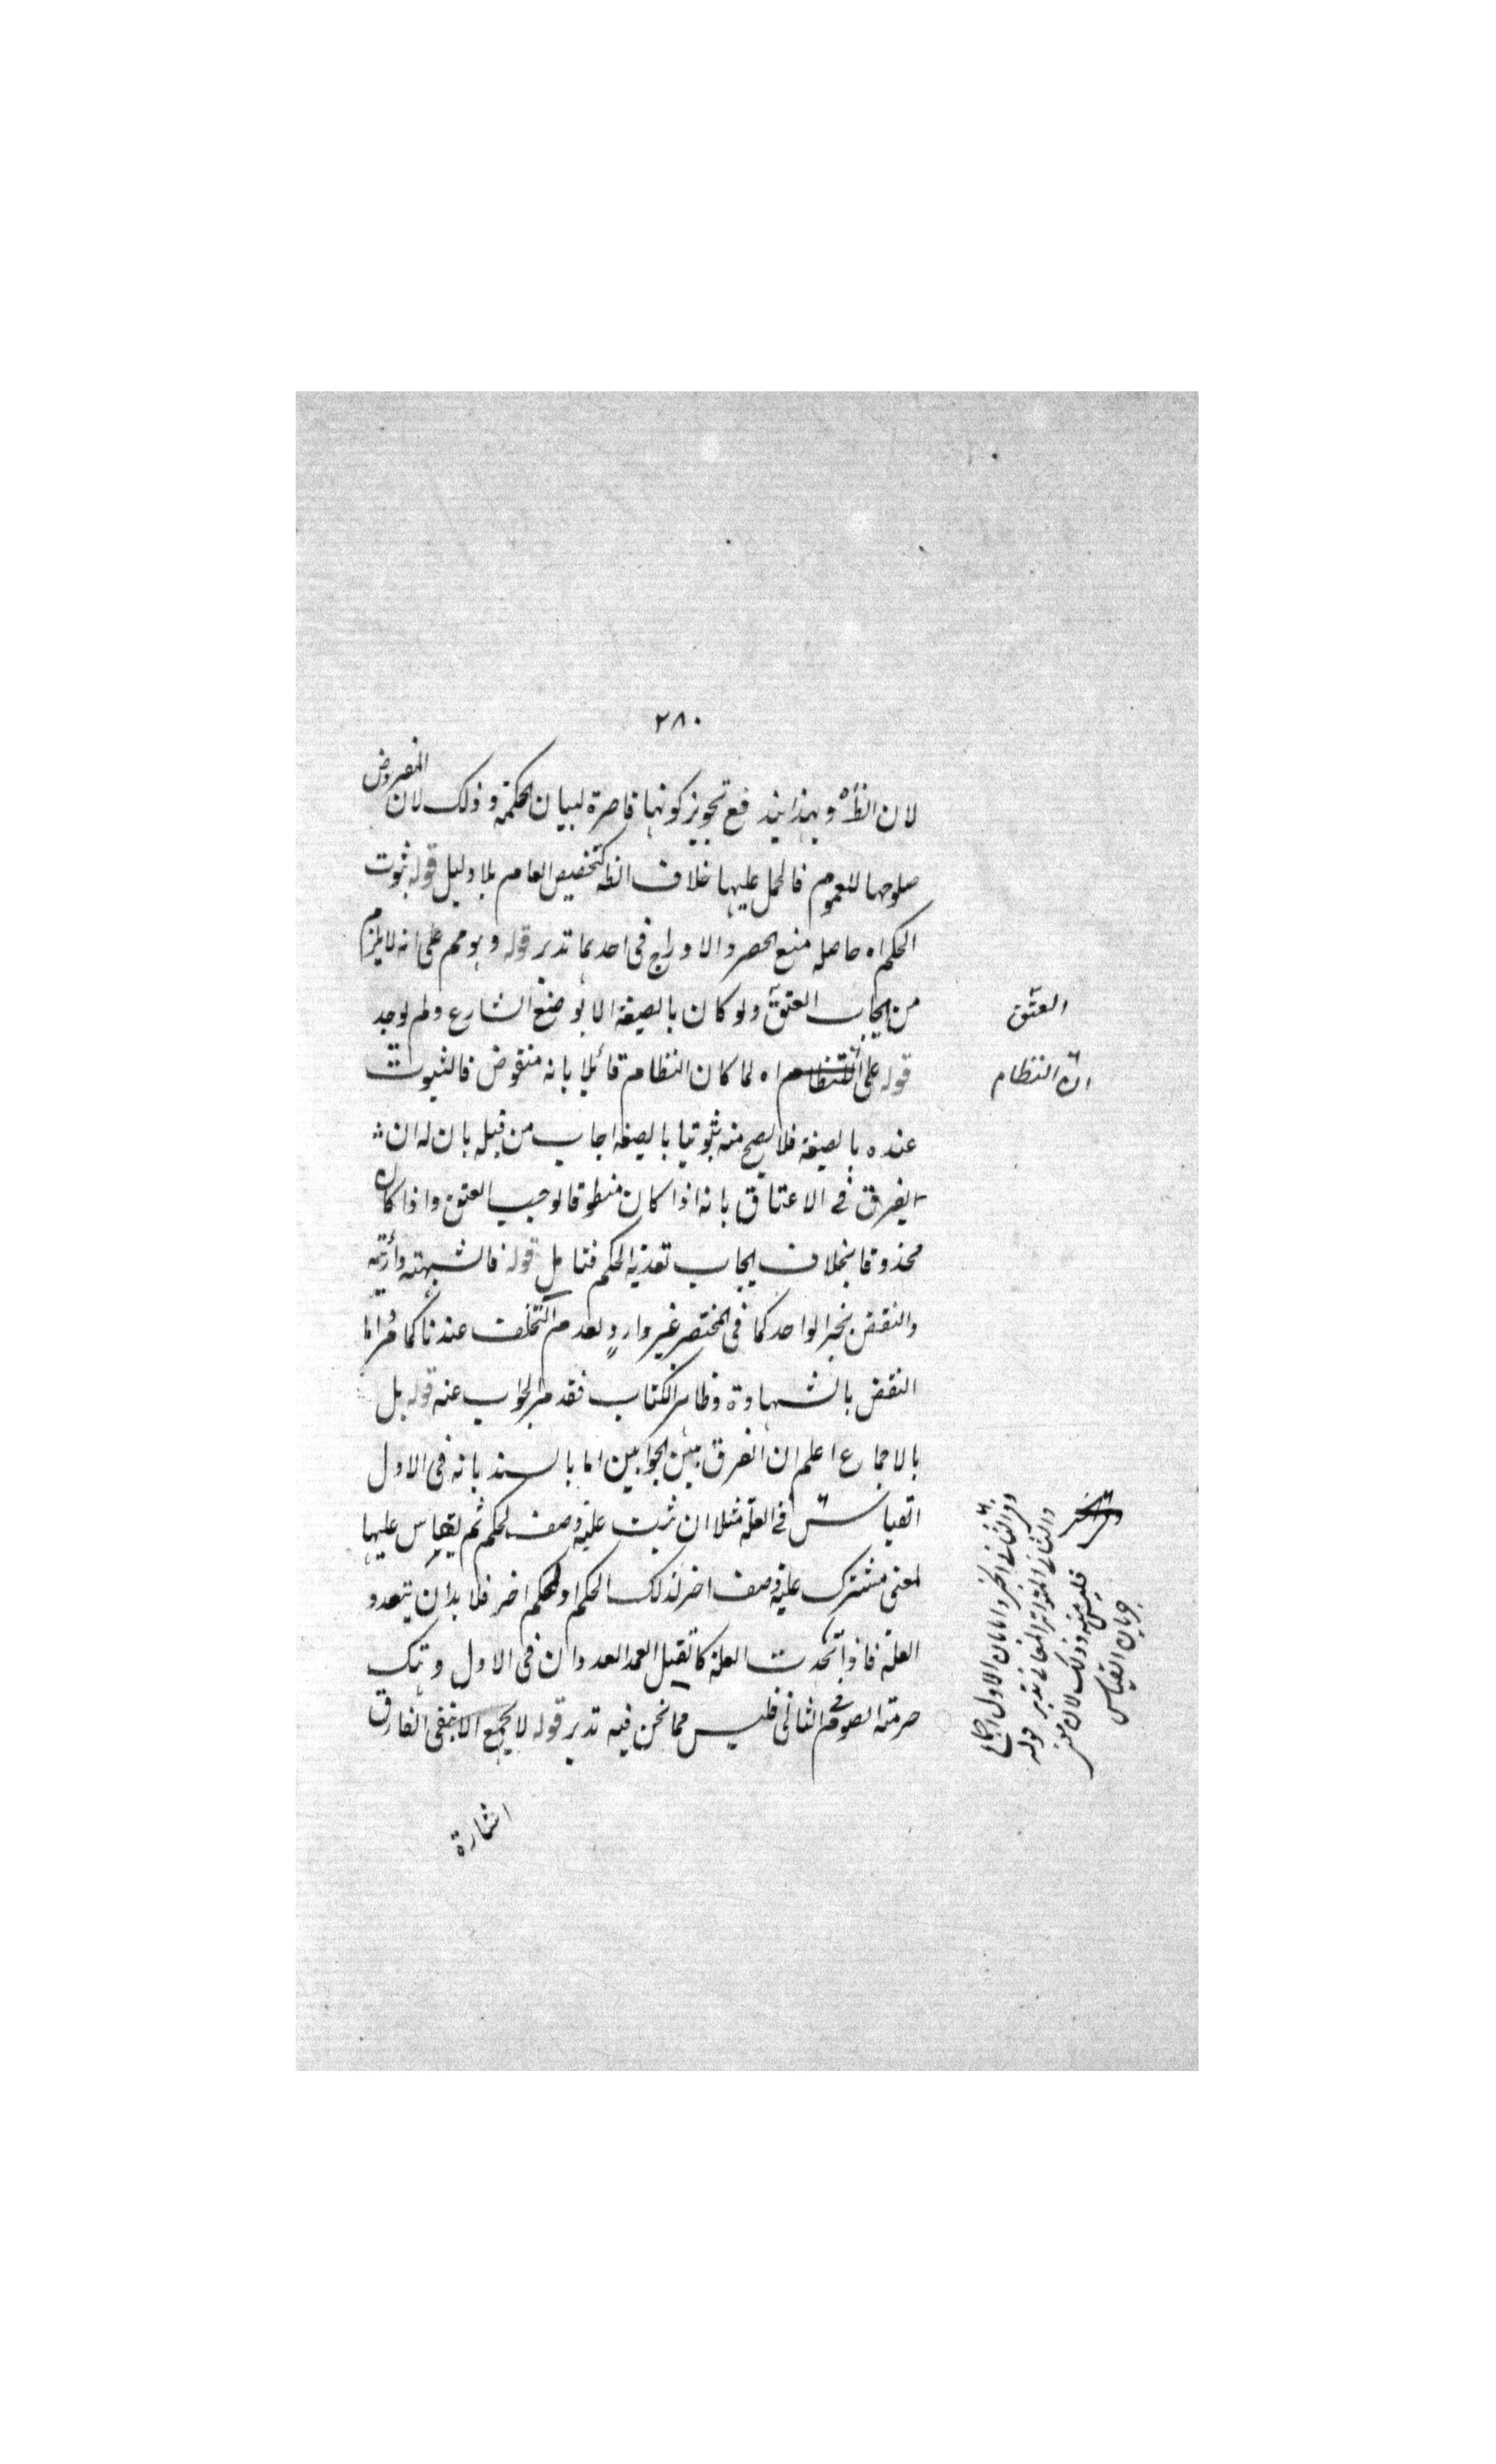 ٢٨٠
لان الظه وبهذا يندفع تجويز كونها قاصرة لبيان الحكمة وذلك لان المفروض
صلوحها للعموم فالحمل عليها خلاف الظه كتخصيص العام بلا دليل قوله ثبوت
الحكم اه حاصله منع الحصر والادراج فى احدهما تدبر قوله وهو مم على انه لا يلزم
من ايجاب العتق ولو كان بالصيغة الا بوضع الشارع ولم يوجد
قوله على اه لما كان النظام قائلا بانه منقوض فالثبوت
عنده بالصيغة فلا يصح منه ثبوتيا بالصيغة اجاب من قبله بان له ان
يفرق فى الاعتاق بانه اذا كان منطوقا لوجب العتق واذا كان
محذوفا بخلاف ايجاب تعدية الحكم فتامل قوله فالشبهة دارئة
والنقض بخبر الواحد كما فى المختصر غير وارد لعدم التخلف عندنا كما مر اما
النقض بالشهادة وظاهر الكتاب فقد مر الجواب عنه قوله بل
بالاجماع اعلم ان الفرق بين الجوابين اما بالسند بانه فى الاول
القياس فى العلة مثلا ان ثبت علية وصف لحكم ثم يقاس عليها
لمعنى مشترك علية وصف اخر لذلك الحكم او لحكم اخر فلا بد ان يتعدد
العلة فاذا اتحدت العلة كالقتل العمد العدوان فى الاول وهتك
حرمة الصوم فى الثانى فليس مما نحن فيه تدبر قوله لا يجمع الا بنفى الفارق
اشارة
العتق
النظام
وفى الثانى الخبر واما بان الاول اجماع
والثانى المتواتر المعانى تدبر قوله
فليس منه وذلك لان
جريان القياس